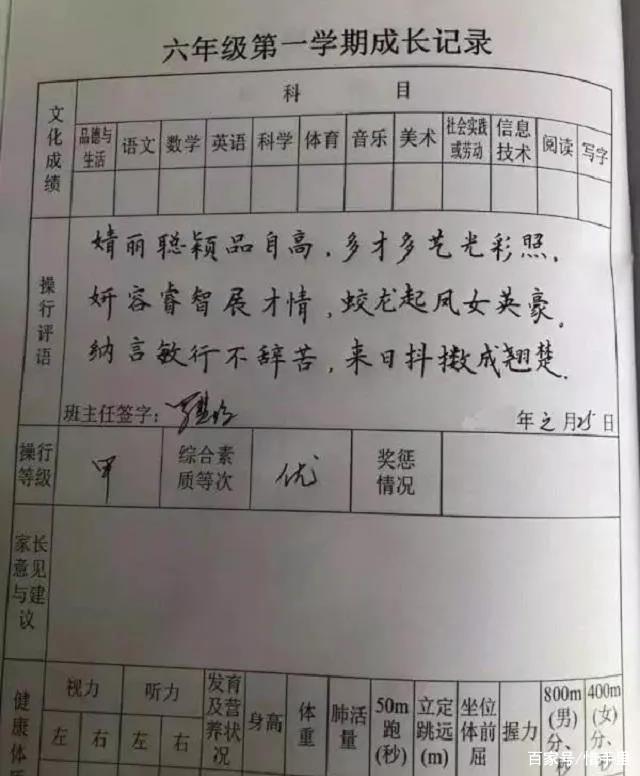 六年级第一学期成长记录
文化成绩
科 目
品德与生活 语文 数学 英语 科学 体育 音乐 美术 社会实践或劳动 信息技术 阅读 写字
操行评语
婧丽聪颖品自高,多才多艺光彩照。
妍容睿智展才情,蛟龙起凤女英豪。
纳言敏行不辞苦,来日抖擞成翘楚。
班主任签字: 年 月25日
操行等级 甲 综合素质等次 优 奖惩情况
家长意见与建议
健康体质
视力 听力 发育及营养状况 身高 体重 肺活量 50m跑(秒) 立定跳远(m) 坐位体前屈 握力 800m(男)分、秒 400m(女)分、秒
左 右 左 右
百家号/悟手里